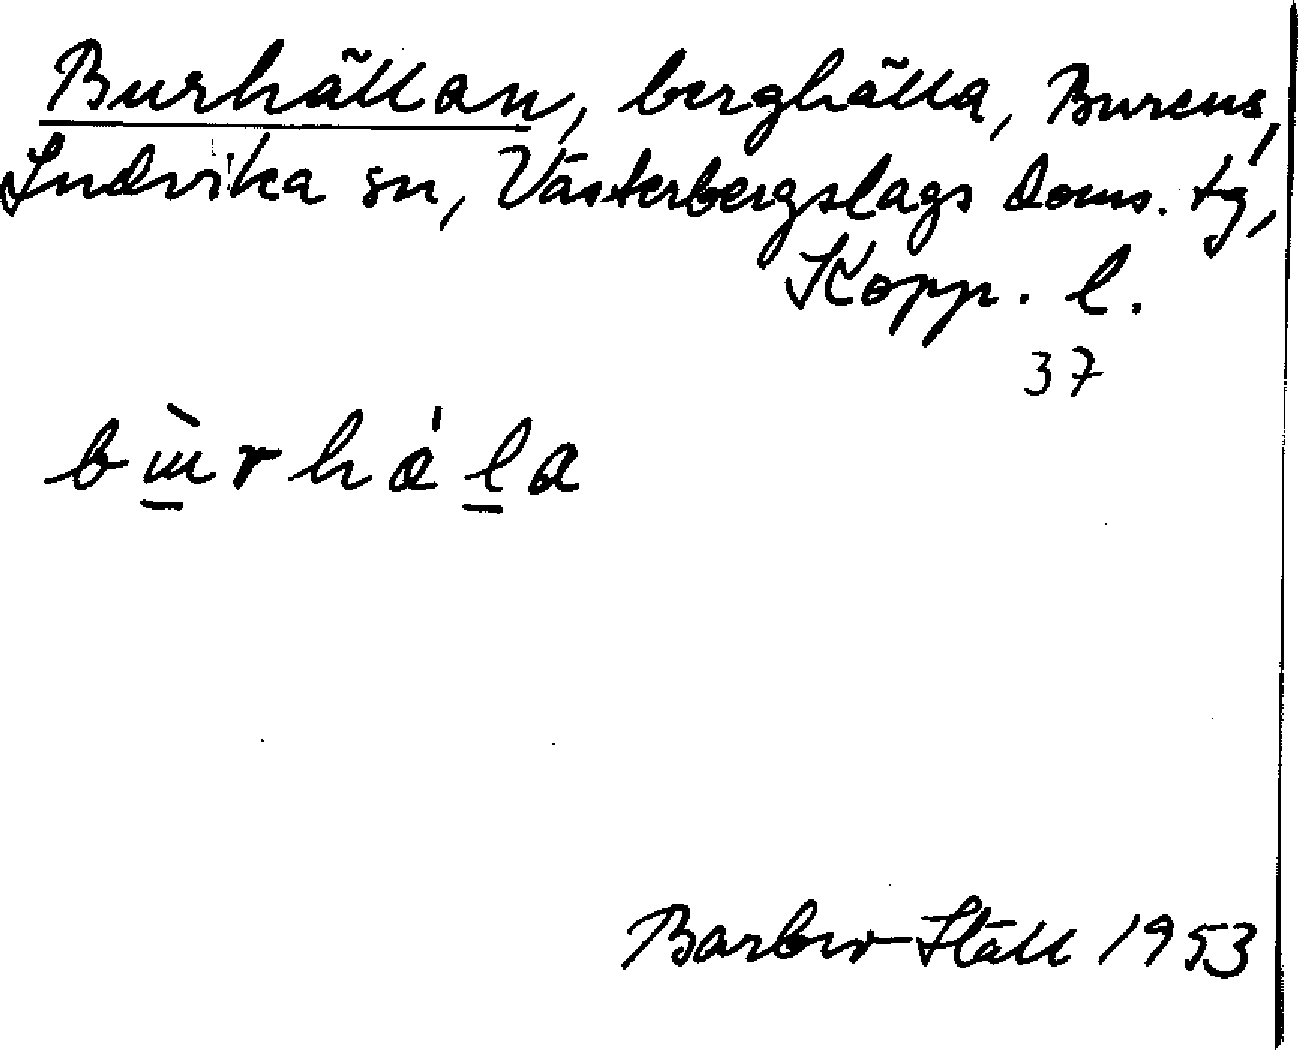 Burhällan, berghälla, Burens,
Ludvika sn, Västerbergslags doms. tg,
Kopp. l.
37
Barbro Ståll 1953